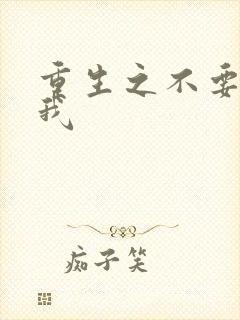 重生之不要
我
痴子笑